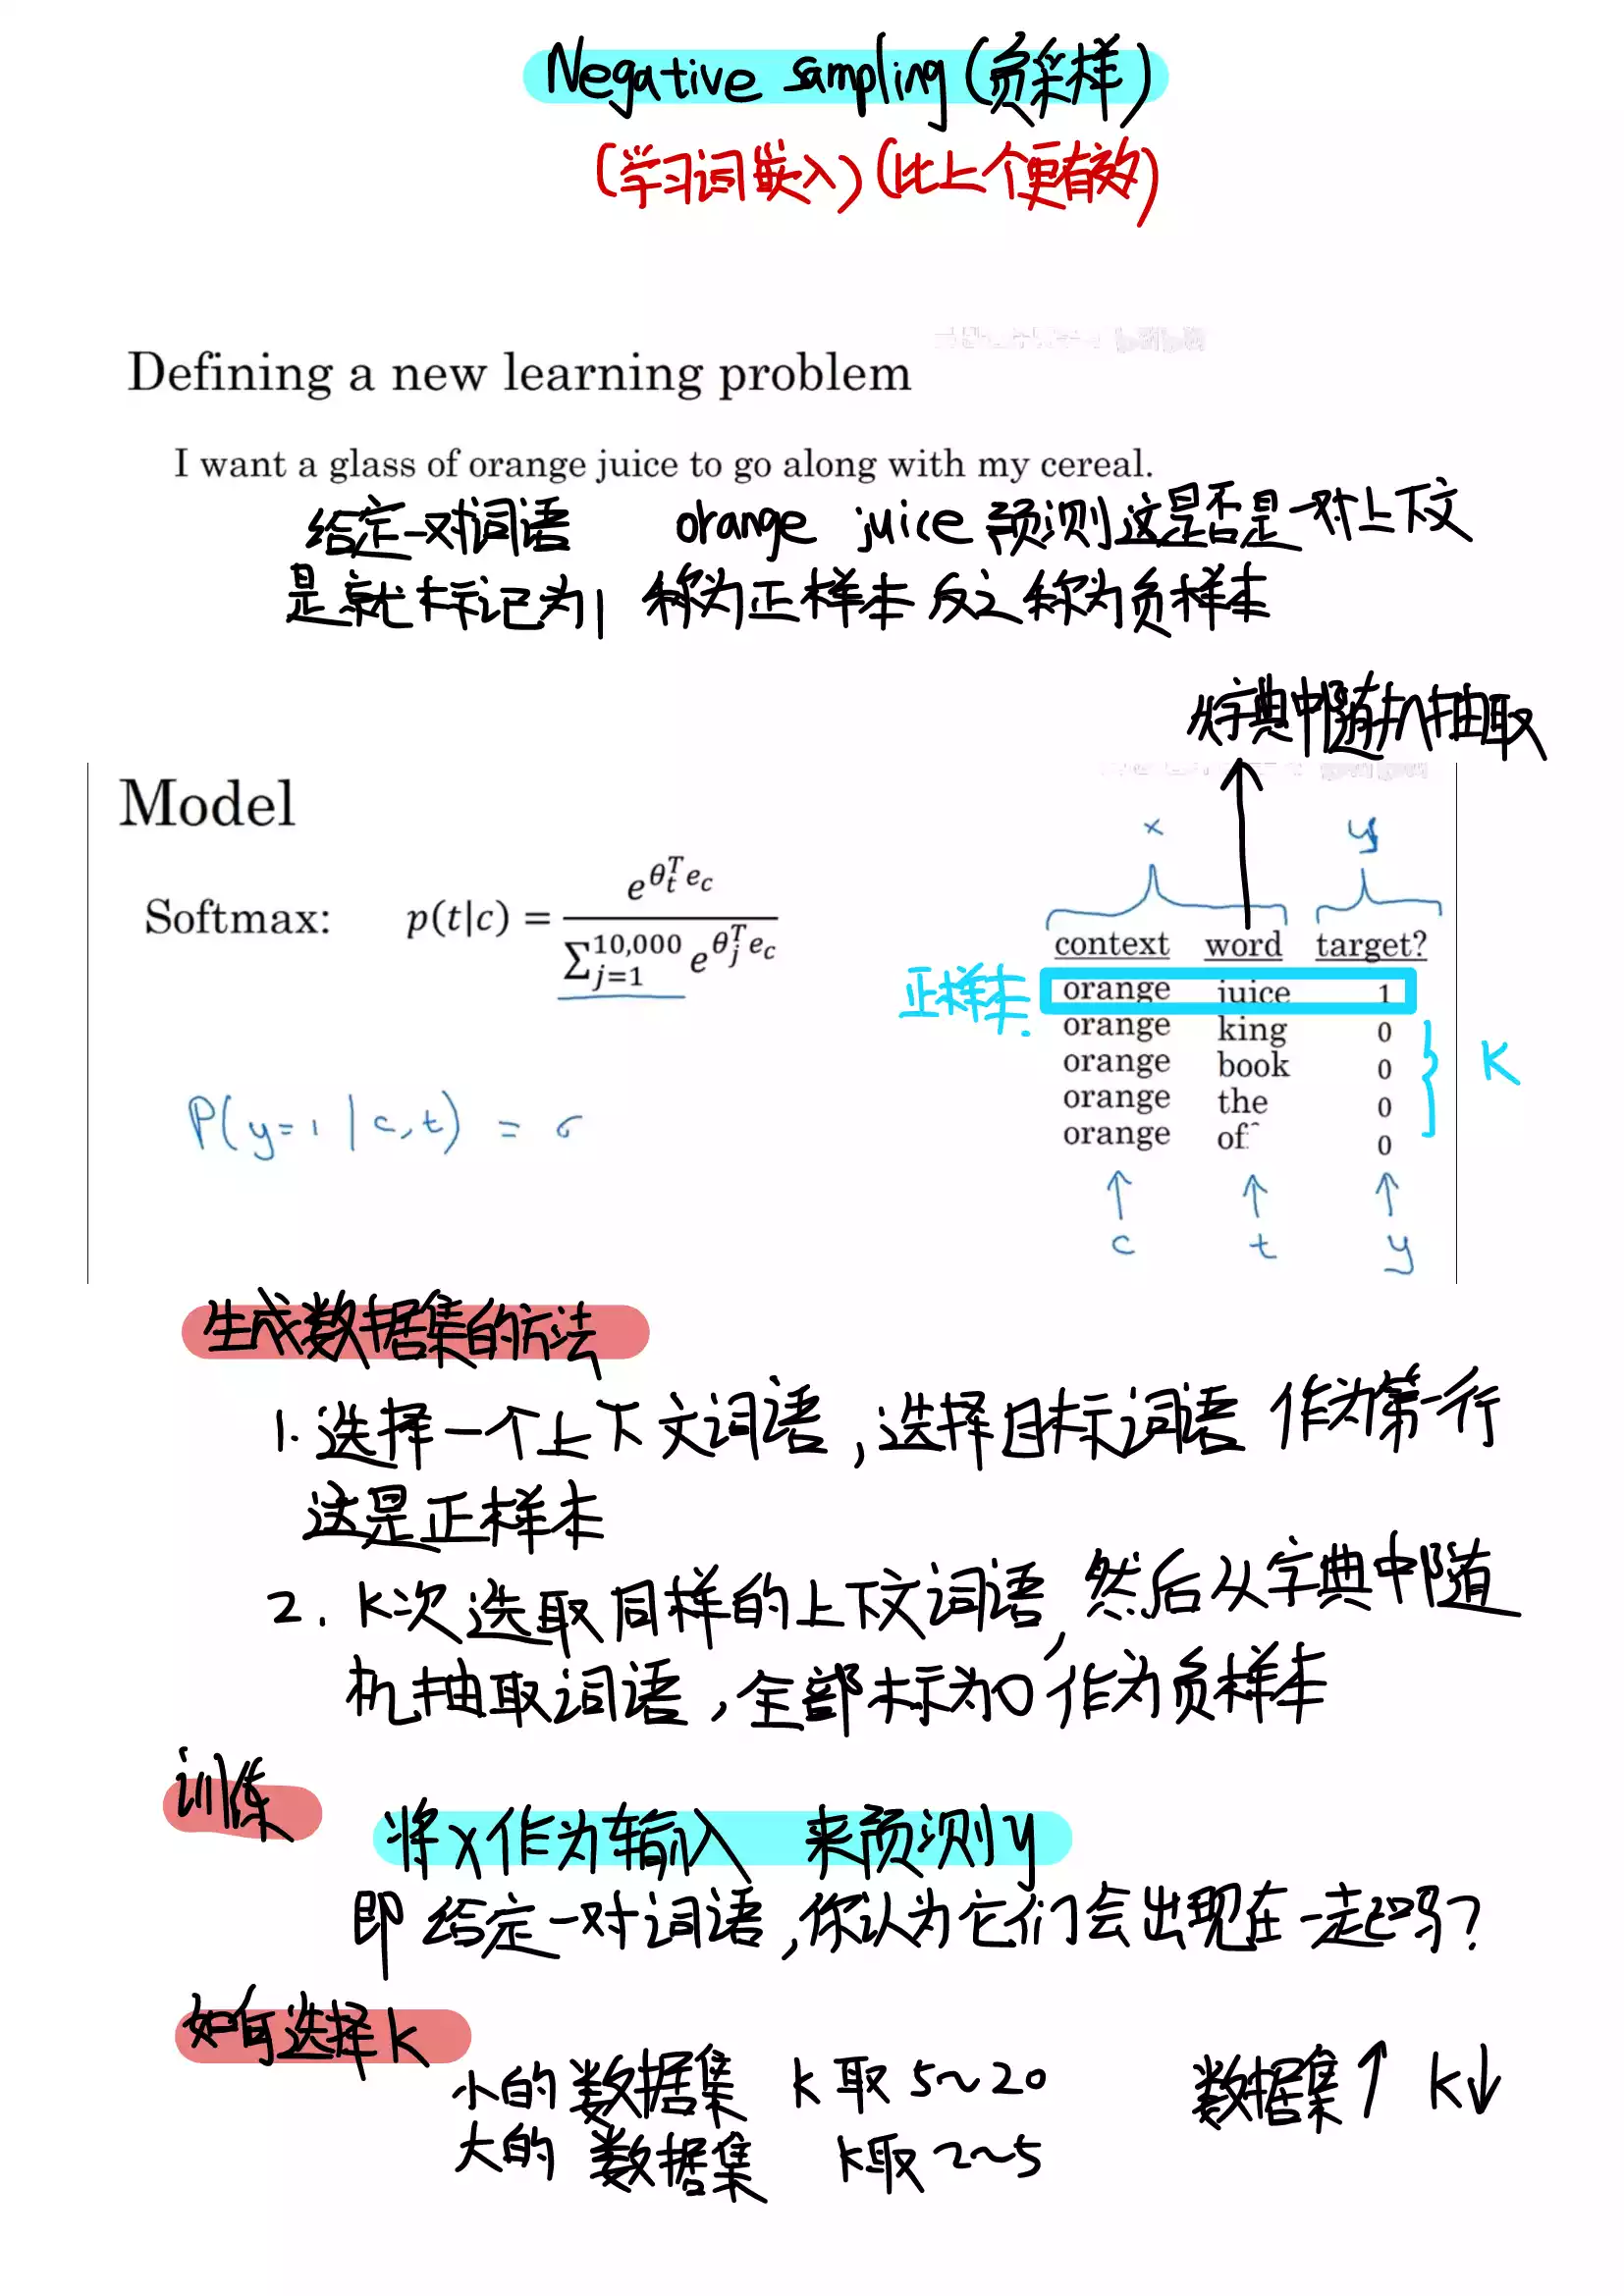 Negative sampling (负采样)
(学习词嵌入) (比上个更有效)
Defining a new learning problem
I want a glass of orange juice to go along with my cereal.
给定一对词语 orange juice 预测这是否是一对上下文
是就标记为1 称为正样本 反之称为负样本
从字典中随机抽取
Model
x y
Softmax: p(t|c) = e^{θ_t^T e_c} / ∑_{j=1}^{10,000} e^{θ_j^T e_c}
context word target?
正样本 orange juice 1
orange king 0
orange book 0
orange the 0
orange of 0
K
P(y=1 | c,t) = σ
c t y
生成数据集的方法
1. 选择一个上下文词语,选择目标词语 作为第一行
这是正样本
2. K次选取同样的上下文词语,然后从字典中随
机抽取词语,全部标为0作为负样本
训练
将x作为输入 来预测y
即 给定一对词语,你认为它们会出现在一起吗?
如何选择k
小的数据集 k取 5~20 数据集↑ K↓
大的数据集 k取 2~5